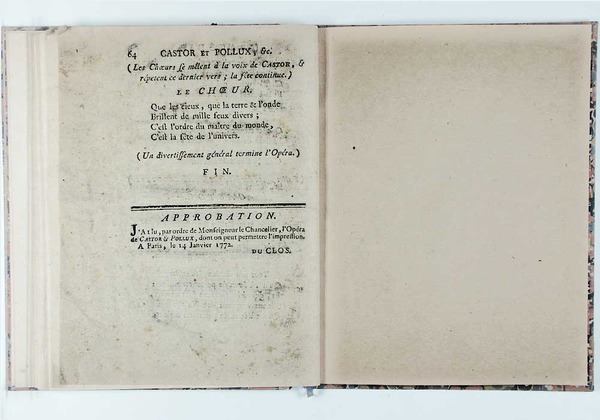 64 CASTOR ET POLLUX, &c.
(Les Chœurs se mêlent à la voix de CASTOR, &
répetent ce dernier vers ; la fête continue.)
LE CHŒUR.
Que les cieux, que la terre & l'onde
Brillent de mille feux divers ;
C'est l'ordre du maître du monde,
C'est la fête de l'univers.
(Un divertissement général termine l'Opéra.)
FIN.
APPROBATION.
J'AI lu, par ordre de Monseigneur le Chancelier, l'Opéra
de CASTOR & POLLUX, dont on peut permettre l'impression.
A Paris, le 14 Janvier 1772.
DU CLOS.